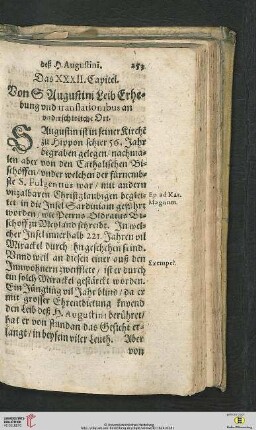 deß H. Augustini. 253
Das XXXII. Capitel.
Von S. Augustini Leib Erhe-
bung vnd translationibus an
vnderschidliche Ort.
S. Augustin ist in seiner Kirche
zu Hippon schier 56. Jahr
begraben gelegen / nachma-
len aber von den Catholischen Bi-
schoffen / vnder welchen der fürnemb-
ste S. Fulgentius war / mit andern
vnzalbaren Christglaubigen beglei-
tet in die Insel Sardiniam geführt
worden / wie Petrus Oldratus Bi-
schoff zu Meyland schreibt. In wel-
cher Insel innerhalb 221. Jahren vil
Mirackel durch ihn geschehen seind.
Vnnd weil an disen einer auß den
Innwohnern zweifflete / ist er durch
ein solch Mirackel gestärckt worden.
Ein Jüngling vil Jahr blind / da er
mit grosser Ehrerbietung knyend
den Leib deß H. Augustini berühret /
hat er von stundan das Gesicht er-
langt / in beysein viler Leuth. Aber
von
Ep. ad Kar.
Magnum.
Exempel.